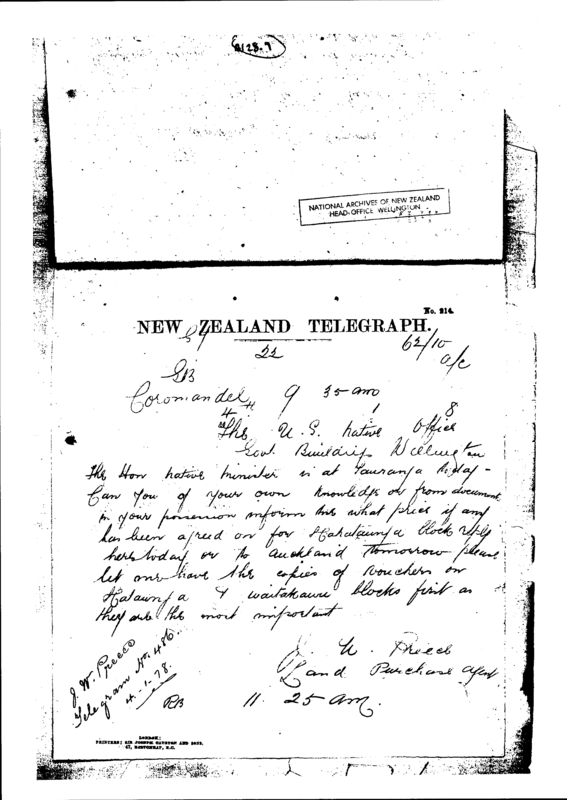 8128.7
NATIONAL ARCHIVES OF NEW ZEALAND
HEAD-OFFICE WELLINGTON
No. 214.
NEW ZEALAND TELEGRAPH.
22
62/10
a/c
Coromandel 9 35 am
4 1 8
The U.S. native Office
Govt. Buildings Wellington
The Hon native minister is at Tauranga today -
Can you of your own knowledge or from document
in your possession inform me what price if any
has been agreed on for block reply
here today or to Auckland tomorrow please
let me have the copies of vouchers on
& Waitakauru blocks first as
they are the most important
J. W. Preece
Land Purchase agent
11. 25 am.
J. W. Preece
Telegram No. 486.
4.1.78.
LONDON:
PRINTERS: SIR JOSEPH CAUSTON AND SONS,
47, EASTCHEAP, E.C.